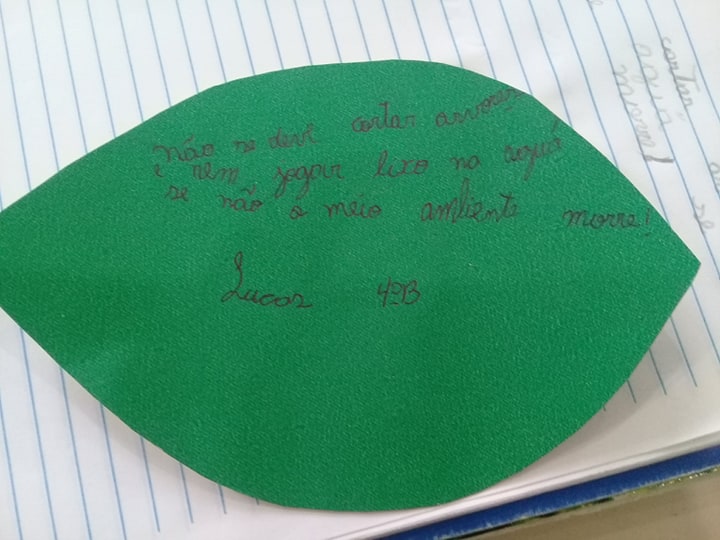 não se deve cortar arvores
e nem jogar lixo na aguá
se não o meio ambiente morre!
Lucas 4ºB
cortar
aguá
morre!
se